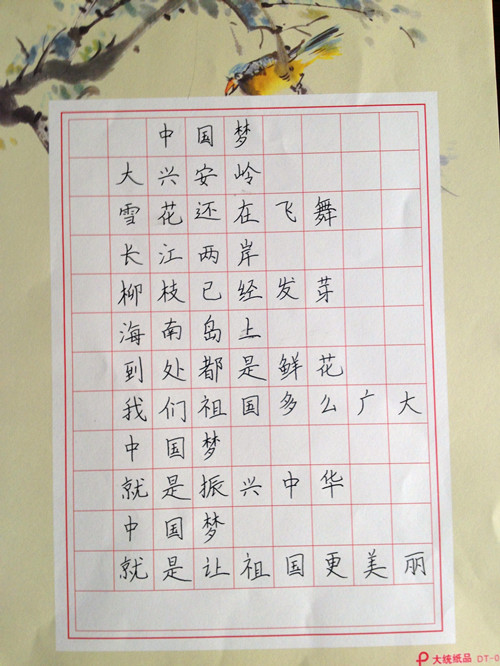 中国梦
大兴安岭
雪花还在飞舞
长江两岸
柳枝已经发芽
海南岛上
到处都是鲜花
我们祖国多么广大
中国梦
就是振兴中华
中国梦
就是让祖国更美丽
大统纸品 DT-0